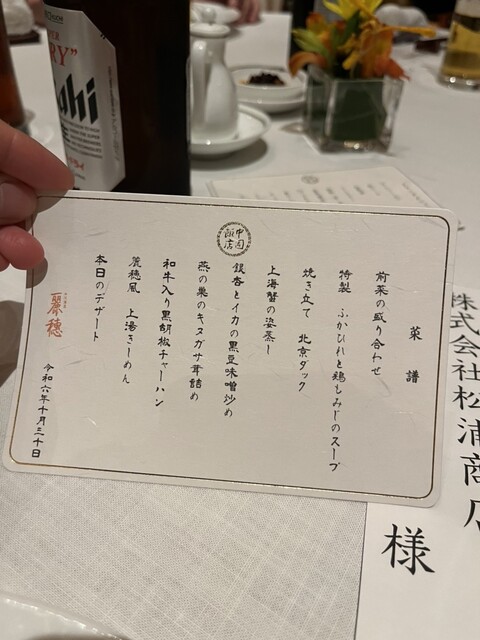 菜譜
前菜の盛り合わせ
特製 ふかひれと鶏もみじのスープ
焼き立て 北京ダック
上海蟹の姿蒸し
中国飯店
銀杏とイカの黒豆味噌炒め
燕の巣のキヌガサ茸詰め
和牛入り黒胡椒チャーハン
麗穂風 上湯きーめん
本日のデザート
麗穂
令和六年十月三十日
株式会社松浦商店
様
RY"
ahi